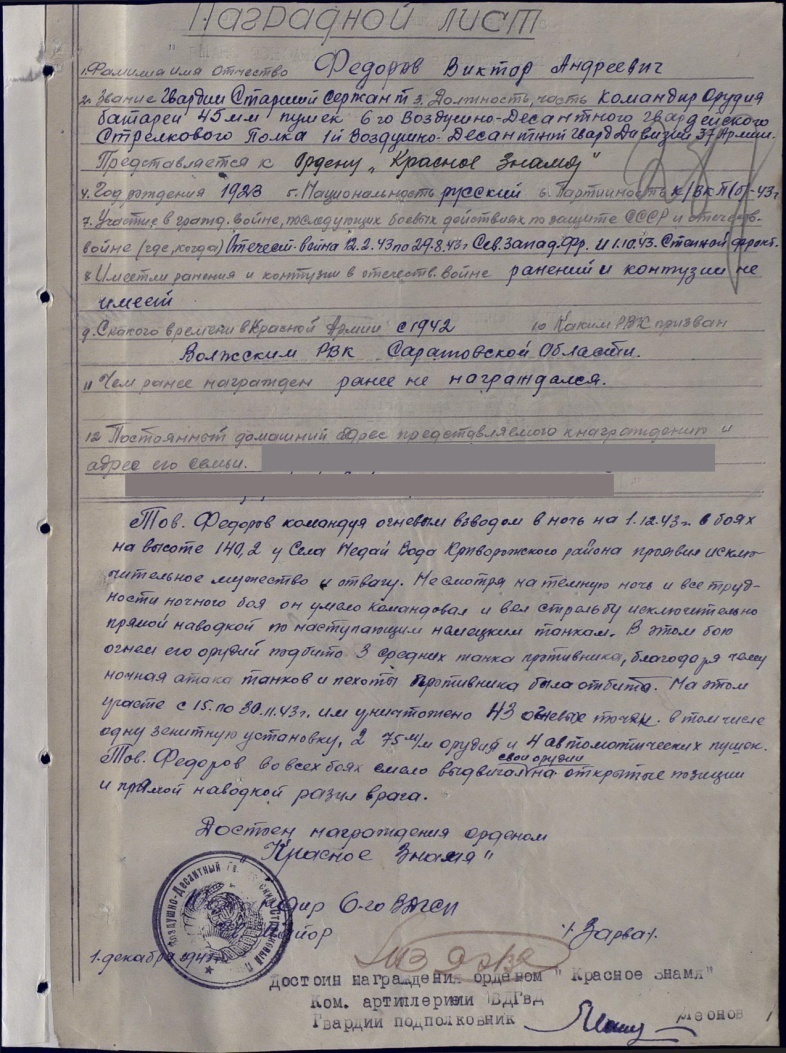 Наградной лист
1. Фамилия имя отчество Федоров Виктор Андреевич
2. Звание Гвардии Старший Сержант 3. Должность, часть Командир Орудия
батареи 45мм пушек 6го Воздушно-Десантного Гвардейского
Стрелкового Полка 1й Воздушно-Десантной Гвард Дивизии 37 Армии.
Представляется к Ордену „Красное Знамя"
4. Год рождения 1923 5. Национальность русский 6. Партийность К/ВКП(б)-43г
7. Участие в гражд. войне, последующих боевых действиях по защите СССР и отечеств.
войне (где, когда) Отечест. война 12.2.43 по 29.8.43г Сев. Запад. Фр. и 1.10.43. Степной фронт.
8 Имеет ли ранения и контузии в отечеств. войне ранений и контузии не
имеет
9. С какого времени в Красной Армии с 1942 10 Каким РВК призван
Волжским РВК Саратовской Области.
11 Чем ранее награжден ранее не награждался.
12 Постоянный домашний адрес представляемого к награждению и
адрес его семьи.
Тов. Федоров командуя огневым взводом в ночь на 1.12.43г. в боях
на высоте 140,2 у Села Недай Вода Криворожского района проявил исклю-
чительное мужество и отвагу. Несмотря на темную ночь и все труд-
ности ночного боя он умело командовал и вел стрельбу исключительно
прямой наводкой по наступающим немецким танкам. В этом бою
огнем его орудий подбито 3 средних танка противника, благодаря чему
ночная атака танков и пехоты противника была отбита. На этом
участке с 15. по 30.11.43г. им уничтожено 43 огневых точки. в том числе
одну зенитную установку, 2 75 м/м орудия и 4 автоматических пушек.
Тов. Федоров во всех боях смело выдвигал свои орудия на открытые позиции
и прямой наводкой разил врага.
Достоен награждения орденом
„Красное Знамя"
6-го ВДГСП
Майор /Зарва/.
1. декабря
Достоин награждения орденом "Красное знамя"
Ком. артиллерии ВДГвд
Гвардии подполковник Леонов